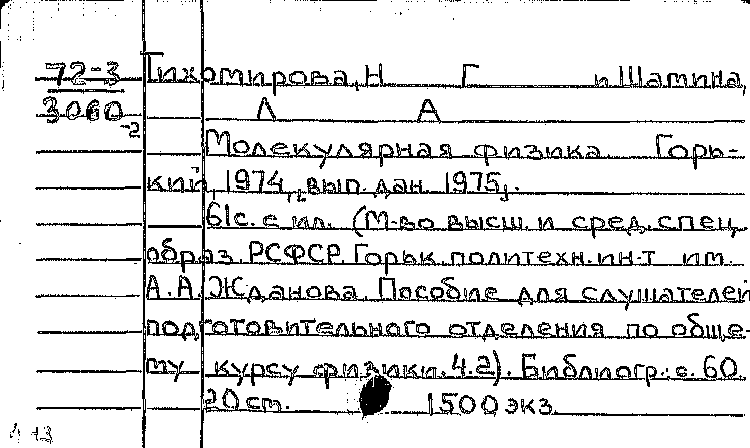 72-3 Тихомирова, Н Г и Шамина,
3060 Л А
-2
Молекулярная физика Горь-
кий, 1974, „вып. дан. 1975„.
61с. с ил. (М-во высш. и сред. спец.
образ. РСФСР. Горьк. политехн. ин-т им.
А.А. Жданова. Пособие для слушателей
подготовительного отделения по обще-
му курсу физики. Ч.2). Библиогр.: с. 60.
20 ст. 1500 экз.